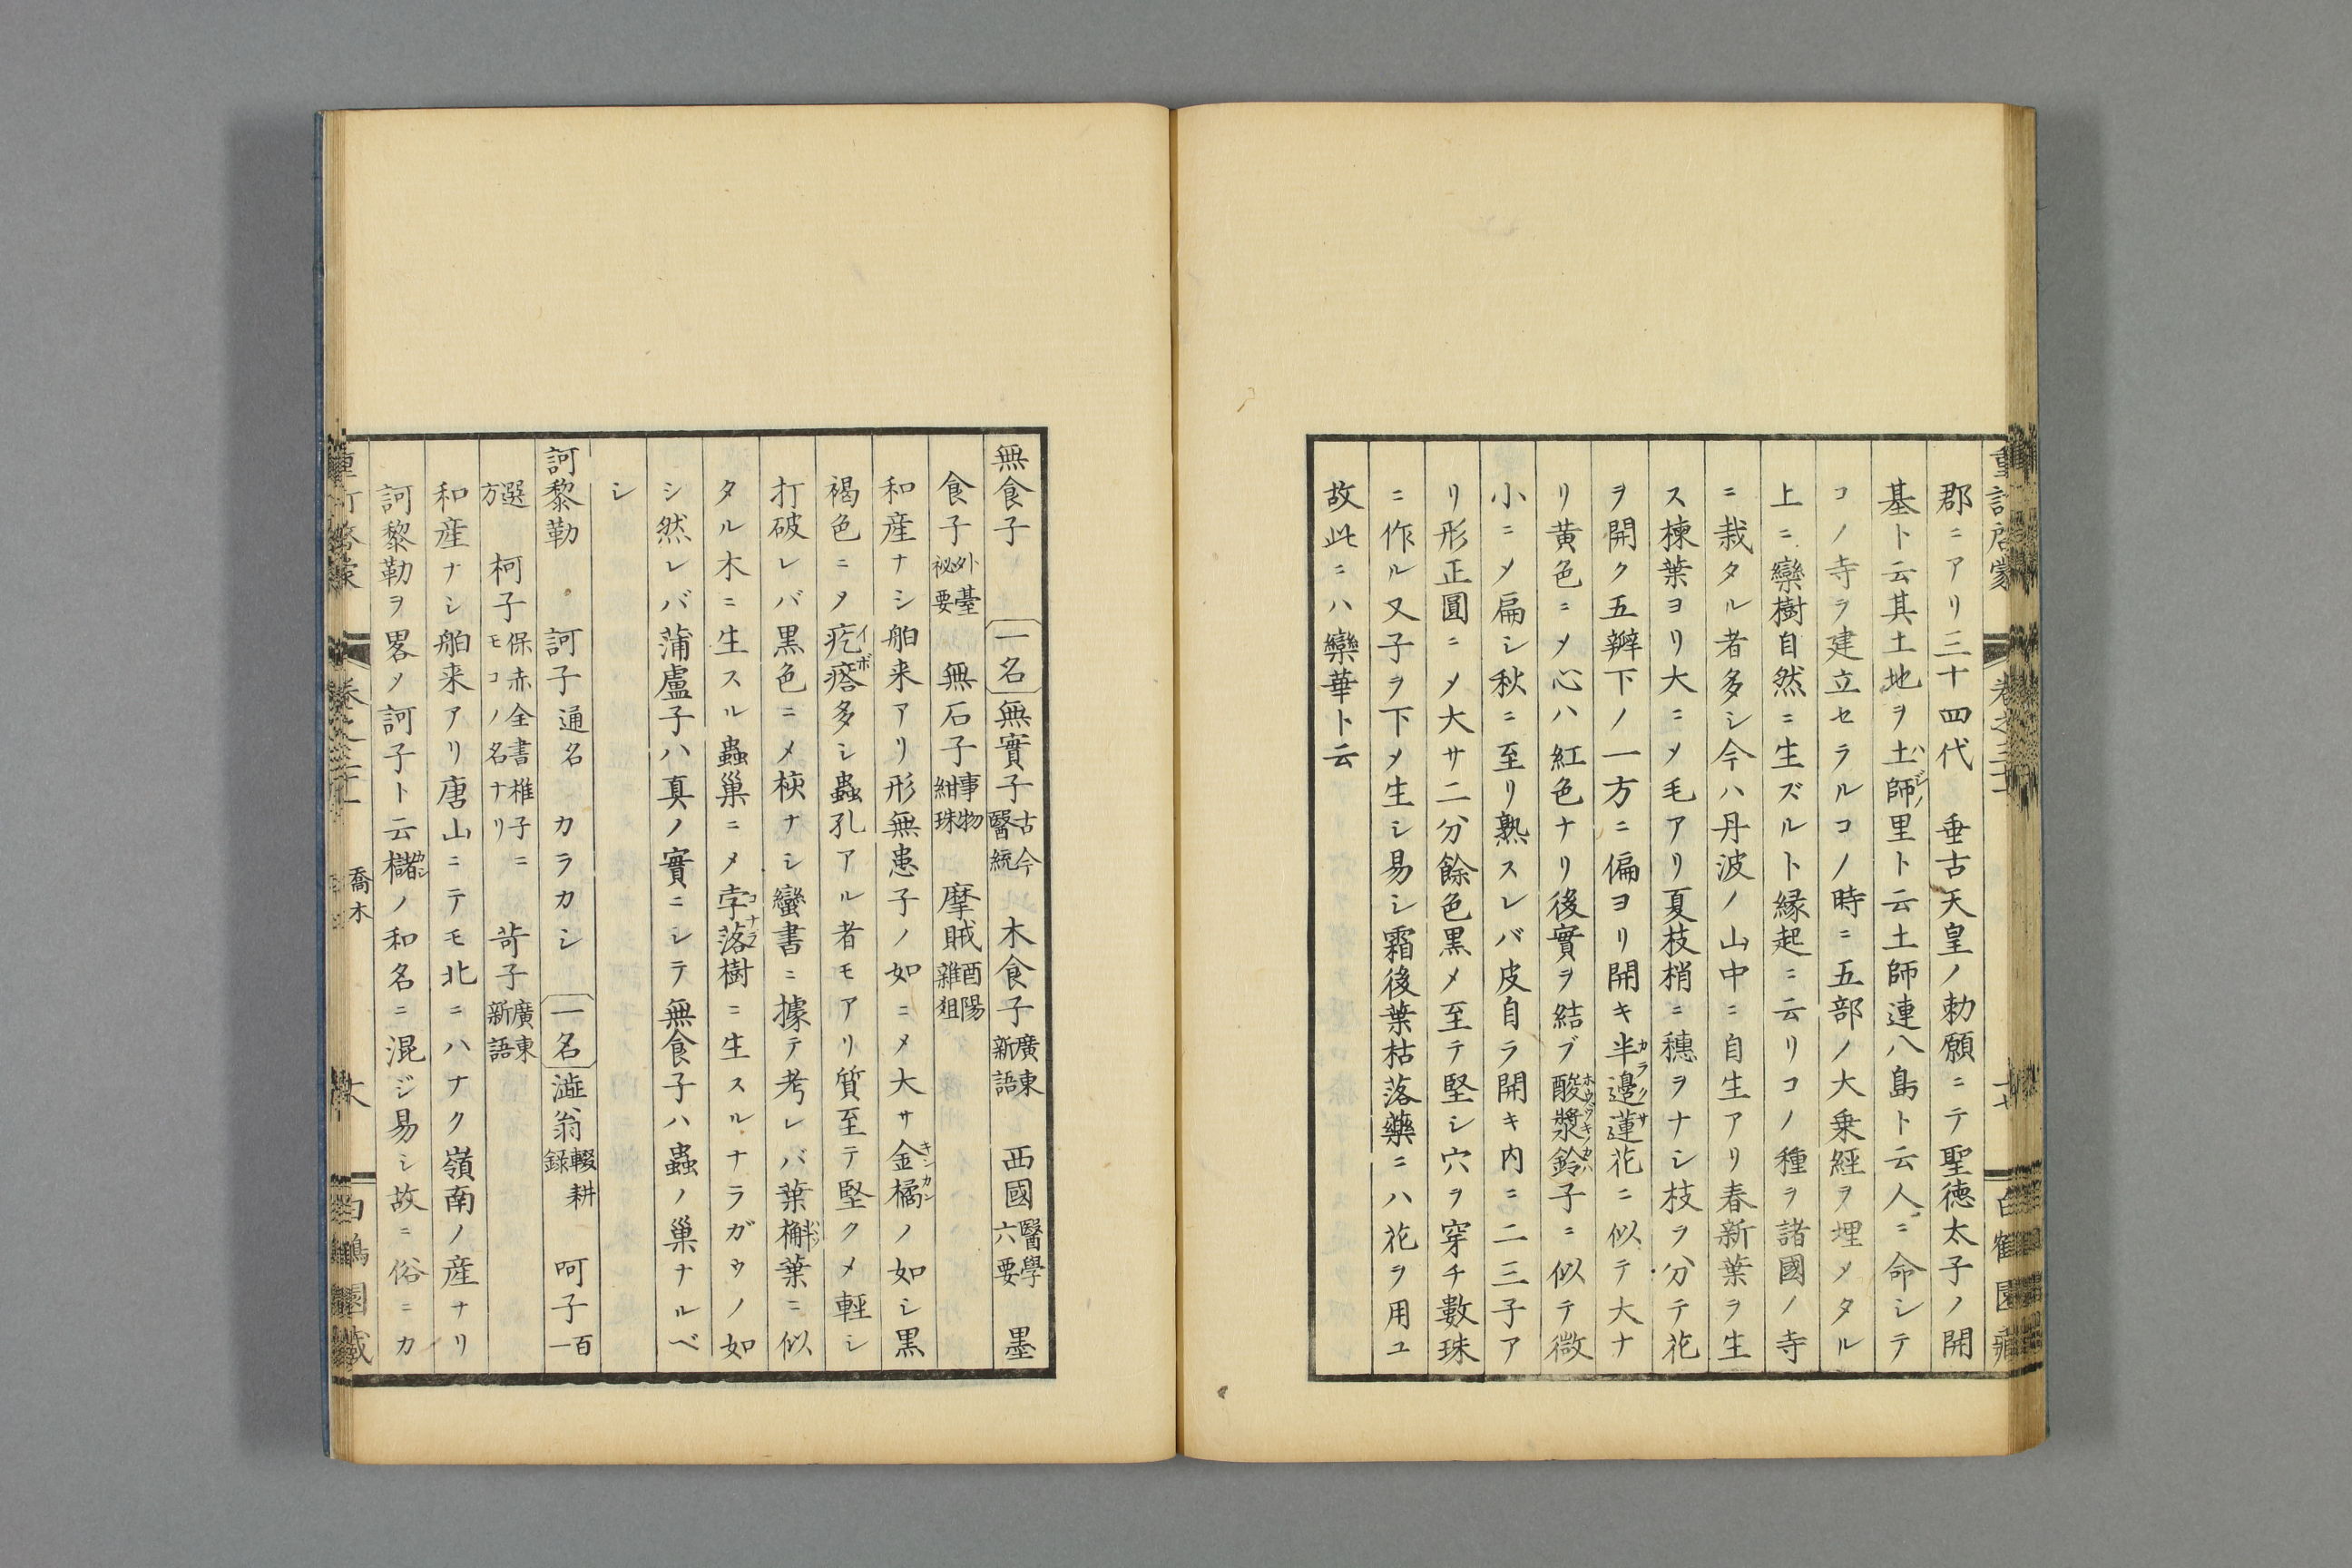 郡ニアリ三十四代　垂古天皇ノ勅願ニテ聖徳太子ノ開
基ト云其土地ヲ土師里ト云土師連八島ト云人ニ命シテ
コノ寺ヲ建立セラルコノ時ニ五部ノ大乗經ヲ埋メタル
上ニ欒樹自然ニ生ズルト縁起ニ云リコノ種ヲ諸國ノ寺
ニ栽タル者多シ今ハ丹波ノ山中ニ自生アリ春新葉ヲ生
ス楝葉ヨリ大ニメ毛アリ夏枝梢ニ穗ヲナシ枝ヲ分テ花
ヲ開ク五瓣下ノ一方ニ偏ヨリ開キ半邉蓮花ニ似テ大ナ
リ黄色ニメ心ハ紅色ナリ後實ヲ結ブ酸漿鈴子ニ似テ微
小ニメ扁シ秋ニ至リ熟スレバ皮自ラ開キ内ニ二三子ア
リ形正圓ニメ大サ二分餘色黒メ至テ堅シ穴ヲ穿チ數珠
ニ作ル又子ヲ下メ生シ易シ霜後葉枯落藥ニハ花ヲ用ユ
故此ニハ欒華ト云
無食子　一名 無實子 古今醫統　木食子 廣東新語　西國 醫學六要　墨
食子 外臺祕要　無石子 事物紺珠　摩賊 酉陽雜俎
和産ナシ舶来アリ形無患子ノ如ニメ大サ金橘ノ如シ黒
褐色ニメ疙瘩多シ蟲孔アル者モアリ質至テ堅クメ輕シ
打破レバ黒色ニメ核ナシ蠻書ニ據テ考レバ葉槲葉ニ似
タル木ニ生スル蟲巢ニメ孛落樹ニ生スルナラガウノ如
シ然レバ蒲盧子ハ真ノ實ニシテ無食子ハ蟲ノ巢ナルベ
シ
訶黎勒　訶子 通名　カラカシ　一名 澁翁 輟耕録　呵子 百一
選方　柯子 保赤全書椎子ニモコノ名ナリ　苛子 廣東新語
和産ナシ舶来アリ唐山ニテモ北ニハナク嶺南ノ産ナリ
訶黎勒ヲ畧メ訶子ト云櫧ノ和名ニ混ジ易シ故ニ俗ニカ
喬木